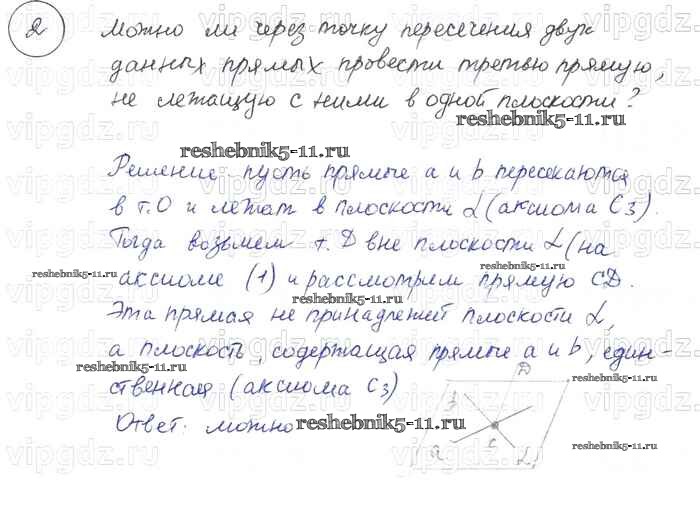 2
Можно ли через точку пересечения двух
данных прямых провести третью прямую,
не лежащую с ними в одной плоскости?
reshebnik5-11.ru
reshebnik5-11.ru
Решение. пусть прямые a и b пересекаются
в т.О и лежат в плоскости α (аксиома С3).
Тогда возьмем т. D вне плоскости α (на
reshebnik5-11.ru
reshebnik5-11.ru
аксиоме (1) и рассмотрим прямую CD.
reshebnik5-11.ru
Эта прямая не принадлежит плоскости α,
а плоскость, содержащая прямые a и b, един-
reshebnik5-11.ru
ственная (аксиома С3)
D
b
Ответ. можно
reshebnik5-11.ru
reshebnik5-11.ru
a
c
α
vipgdz.ru